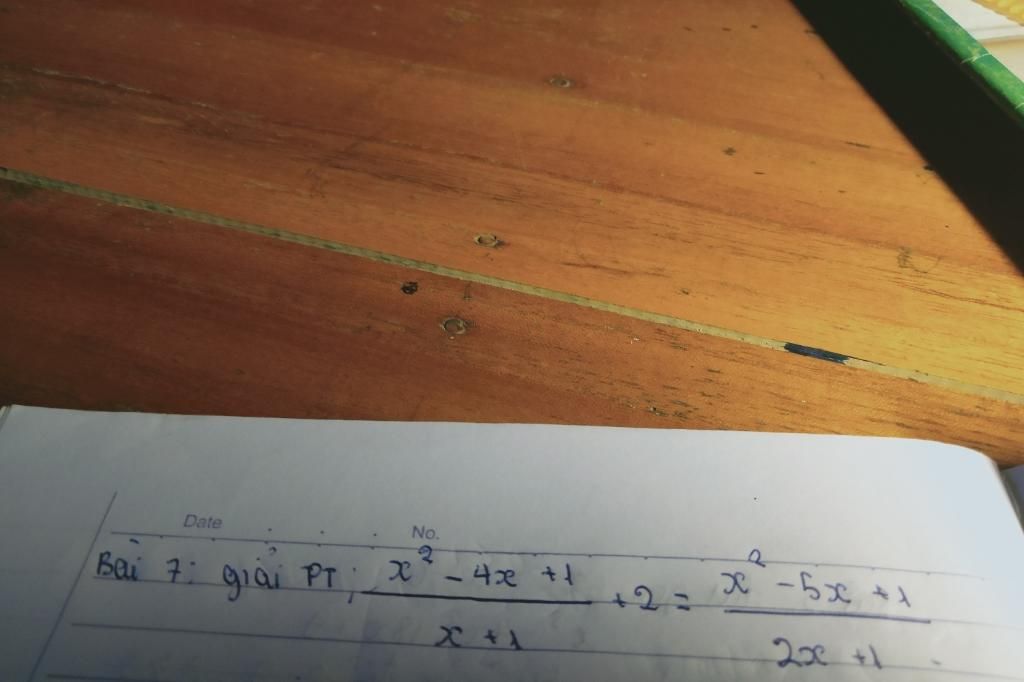 Date No.
Bài 7: giải PT: x² - 4x + 1 + 2 = x² - 5x + 1
x + 1 2x + 1